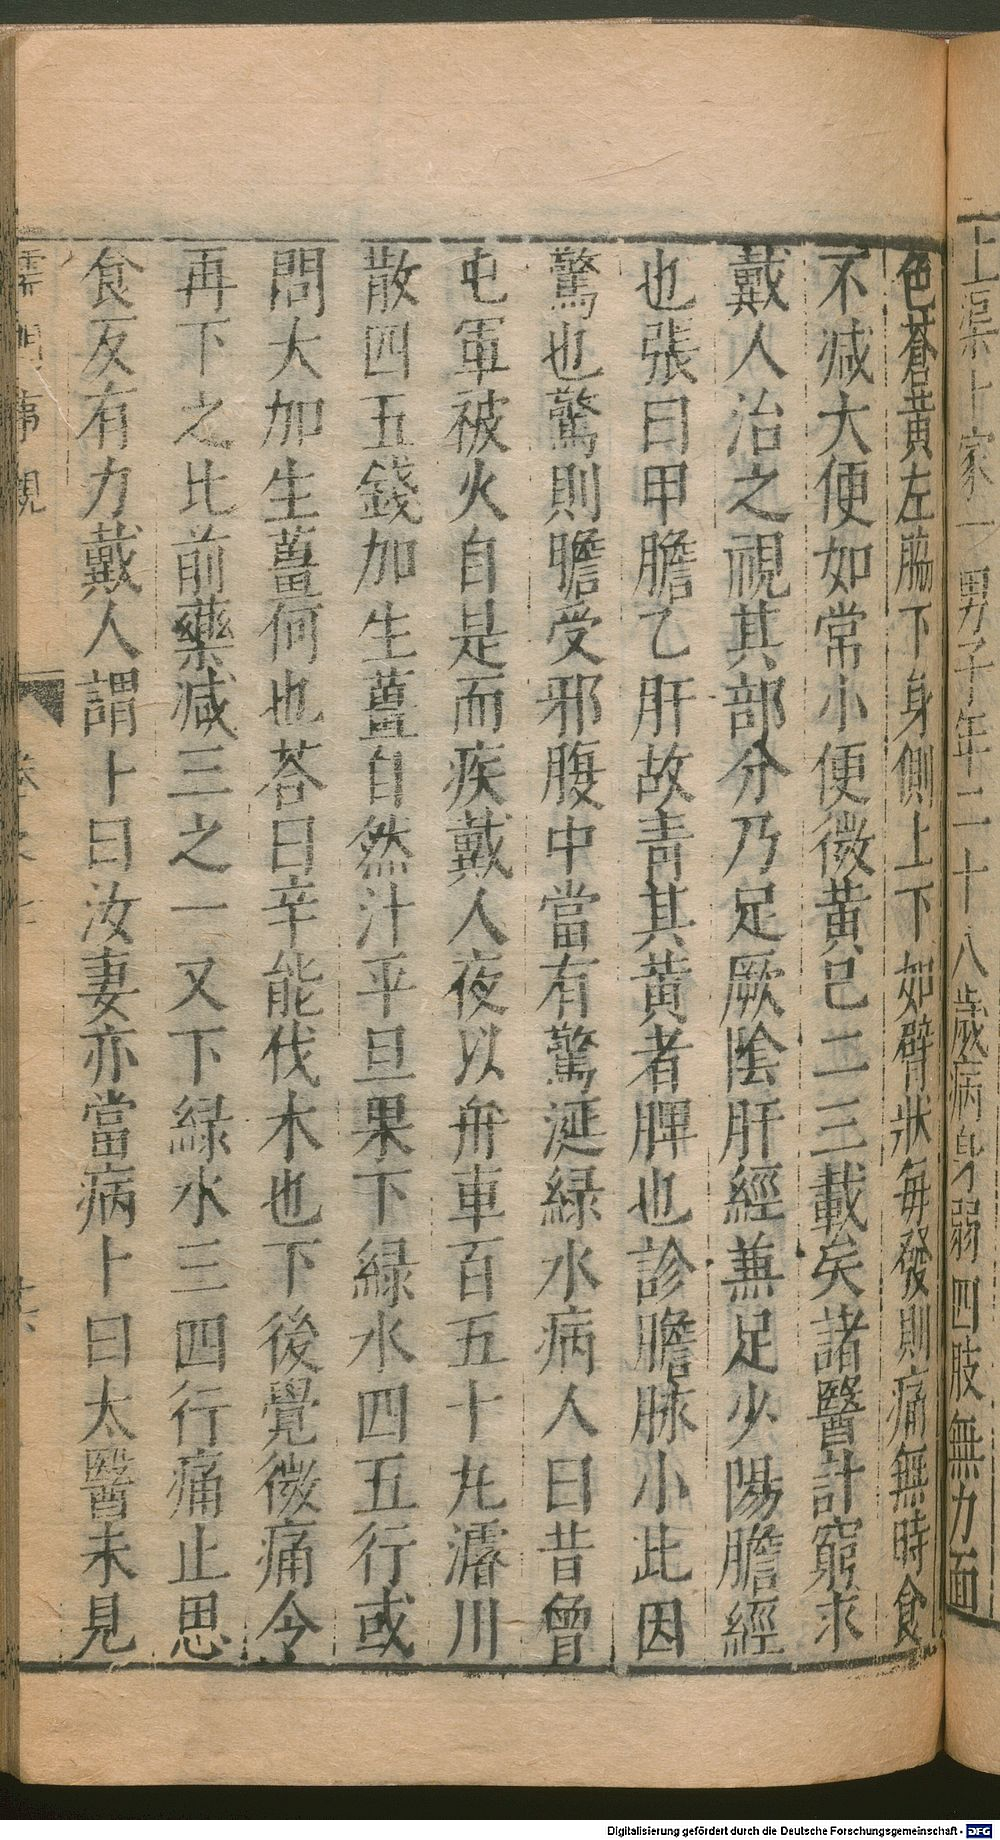 上渠卜家一男子年二十八歲病身弱四肢無力面
色蒼黃左脇下身側上下如臂狀每發則痛無時食
不減大便如常小便微黃已二三載矣諸醫計窮求
戴人治之視其部分乃足厥陰肝經兼足少陽膽經
也張曰甲膽乙肝故青其黃者脾也診膽脉小此因
驚也驚則膽受邪腹中當有驚涎綠水病人曰昔曾
屯軍被火自是而疾戴人夜以舟車百五十丸濬川
散四五錢加生薑自然汁平旦果下綠水四五行或
問大加生薑何也荅曰辛能伐木也下後覺微痛令
再下之比前藥減三之一又下綠水三四行痛止思
食反有力戴人謂卜曰汝妻亦當病卜曰太醫未見
Digitalisierung gefördert durch die Deutsche Forschungsgemeinschaft - DFG